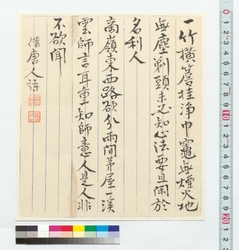 一竹橫簷挂淨巾竈無煙火地
無塵剃頭未必知心法要且閑於
名利人
高嶺東西路欲分兩間茅屋一溪
雲師言耳重知師意人是人非
不欲聞
借唐人語